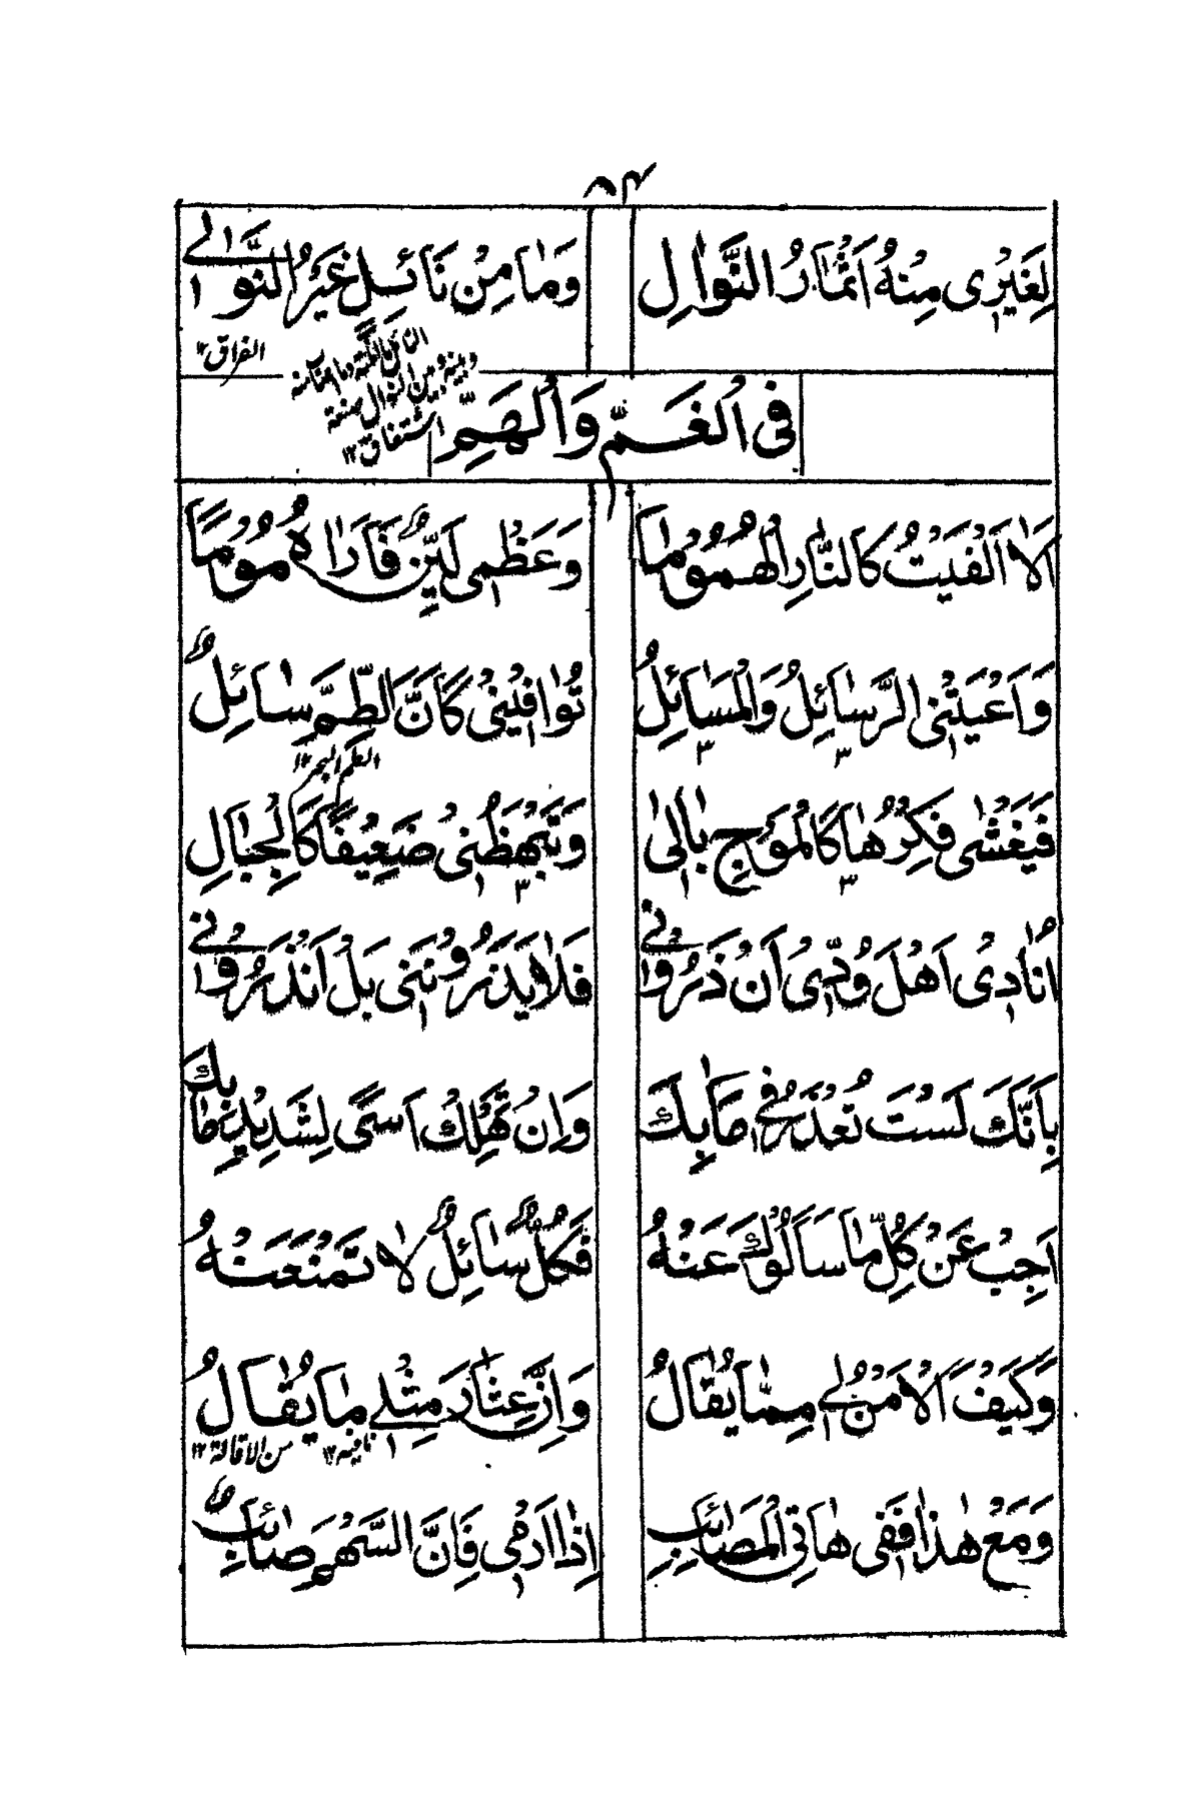 ٨٤
لِغَيْرِى مِنْهُ اَثْمَارُ النَّوَالِ وَمَا مِنْ نَائِلٍ غَيْرُ النَّوَالِىْ
الفراق ١٢
فِى الْغَمِّ وَالْهَمِّ
اَلَا اَلْفَيْتُ كَالنَّارِ الْهُمُوْمَا وَعَظْمِى لَيِّنٌ فَارَاهُ مُوْمَا
وَاَعْيَتْنِى الرَّسَائِلُ وَالْمَسَائِلُ تُوَافِيْنِىْ كَاَنَّ الطِّمَّ سَائِلٌ
الطم البحر ١٢
فَيَغْشٰى فِكْرُهَا كَالْمَوْجِ بَالِىْ وَتَبْهَظُنِىْ ضَعِيْفًا كَالْجِبَالِ
اُنَادِىْ اَهْلَ وُدِّىْ اَنْ ذَرُوْنِىْ فَلَا يَذَرُوْنَنِى بَلْ اَنْذَرُوْنِىْ
بِاَنَّكَ لَسْتَ تُعْذَرُ فِىْ مَابِكَ وَاِنْ تَهْلِكْ اَسًى لِشَدِيْدِ مَابِكَ
اَجِبْ عَنْ كُلِّ مَا سَاَلُوْكَ عَنْهُ فَكُلٌّ سَائِلٌ لَا تَمْنَعَنْهُ
وَكَيْفَ الْاَمْنُ لِىْ مِمَّا يُقَالُ وَاِنَّ عِثَارَ مِثْلِىْ مَا يُقَالُ
نافية ١٢ من الاقالة ١٢
وَمَعْ هٰذَا فَفِى هَاتِى الْمَصَائِبِ اِذَا اَرْمِى فَاِنَّ السَّهْمَ صَائِبٌ